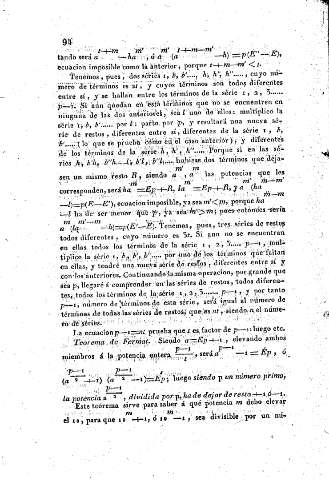 94
tando será
ecuacion imposible como la anterior, porque
Tenemos, pues, dos séries 1, b, b'..... h, h', h''....., cuyo nú-
mero de términos es 2t, y cuyos términos son todos diferentes
entre sí, y se hallan entre los términos de la série 1, 2, 3......
p—1. Si aun quedan en esta términos que no se encuentren en
ninguna de las dos anteriores, sea l uno de ellos: multiplico la
série 1, b, b'..... por l: parto por p, y resultará una nueva sé-
rie de restos, diferentes entre sí, diferentes de la série 1, b,
b'..... (lo que se prueba como en el caso anterior); y diferentes
de los términos de la série h, h', h''..... Porque si en las sé-
ries h, b'h, b''h....l, b'l, b''l.... hubiese dos términos que deja-
sen un mismo resto R, siendo las potencias que les
corresponden, será
ecuacion imposible, ya sea m'<m, porque
ha de ser menor que p, ya sea m'>m; pues entonces sería
Tenemos, pues, tres séries de restos
todos diferentes, cuyo número es 3t. Si aun no se encuentran
en ellas todos los términos de la série 1, 2, 3..... p—1, mul-
tiplico la série 1, b, b', b''..... por uno de los términos que faltan
en ellas, y tendré una nueva série de restos, diferentes entre sí y
con los anteriores. Continuando la misma operacion, por grande que
sea p, llegaré á comprender en las séries de restos, todos diferen-
tes, todos los términos de la série 1, 2, 3...... p—1, y por tanto
p—1, número de términos de esta série, será igual al número de
términos de todas las séries de restos; que es nt, siendo n el núme-
ro de séries.
La ecuacion p—1=nt prueba que t es factor de p—1: luego etc.
Teorema de Fermat. Siendo a=Ep+1, elevando ambos
miembros á la potencia entera será ó
luego siendo p un número primo,
la potencia dividida por p, ha de dejar de resto +1 ó —1.
Este teorema sirve para saber á qué potencia m debo elevar
el 10, para que 10 +1, ó 10 —1, sea divisible por un nú-